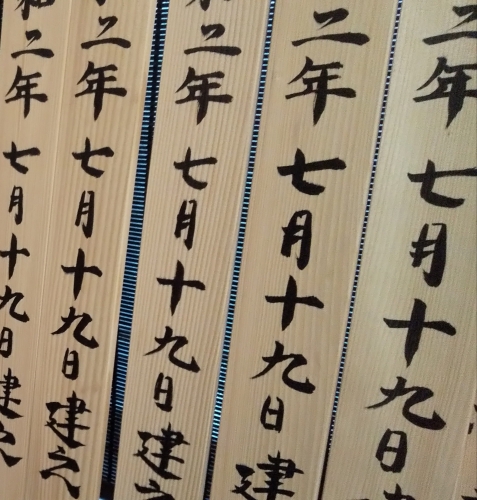 二年七月十九日
二年七月十九日建
二年七月十九日建之
二年七月十九日建之
和二年七月十九日建之